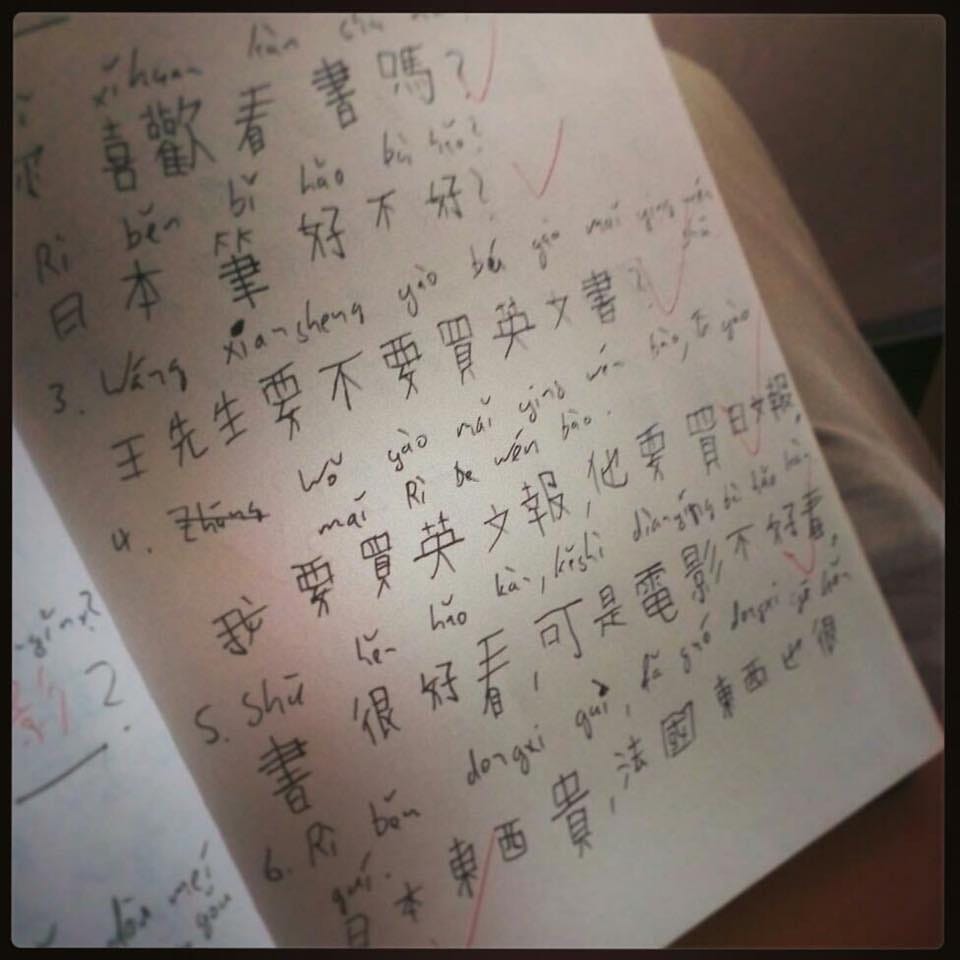 xǐhuan kàn shū
喜歡看書嗎?
Rì běn bǐ hǎo bù hǎo?
日本筆好不好?
3. Wáng xiansheng yào bú yào mǎi yīng wén shū
王先生要不要買英文書?
4. Zhōng wǒ yào mǎi yīng wén bào, tā yào
mǎi Rì be wén bào.
我要買英文報,他要買日文報.
5. Shū hěn hǎo kàn, kěshì diànyǐng bù hǎo kàn.
書很好看,可是電影不好看.
6. Rì běn dongxi guì, fǎ guó dongxi yě hěn
guì.
日本東西貴,法國東西也很
2.
dōu méi